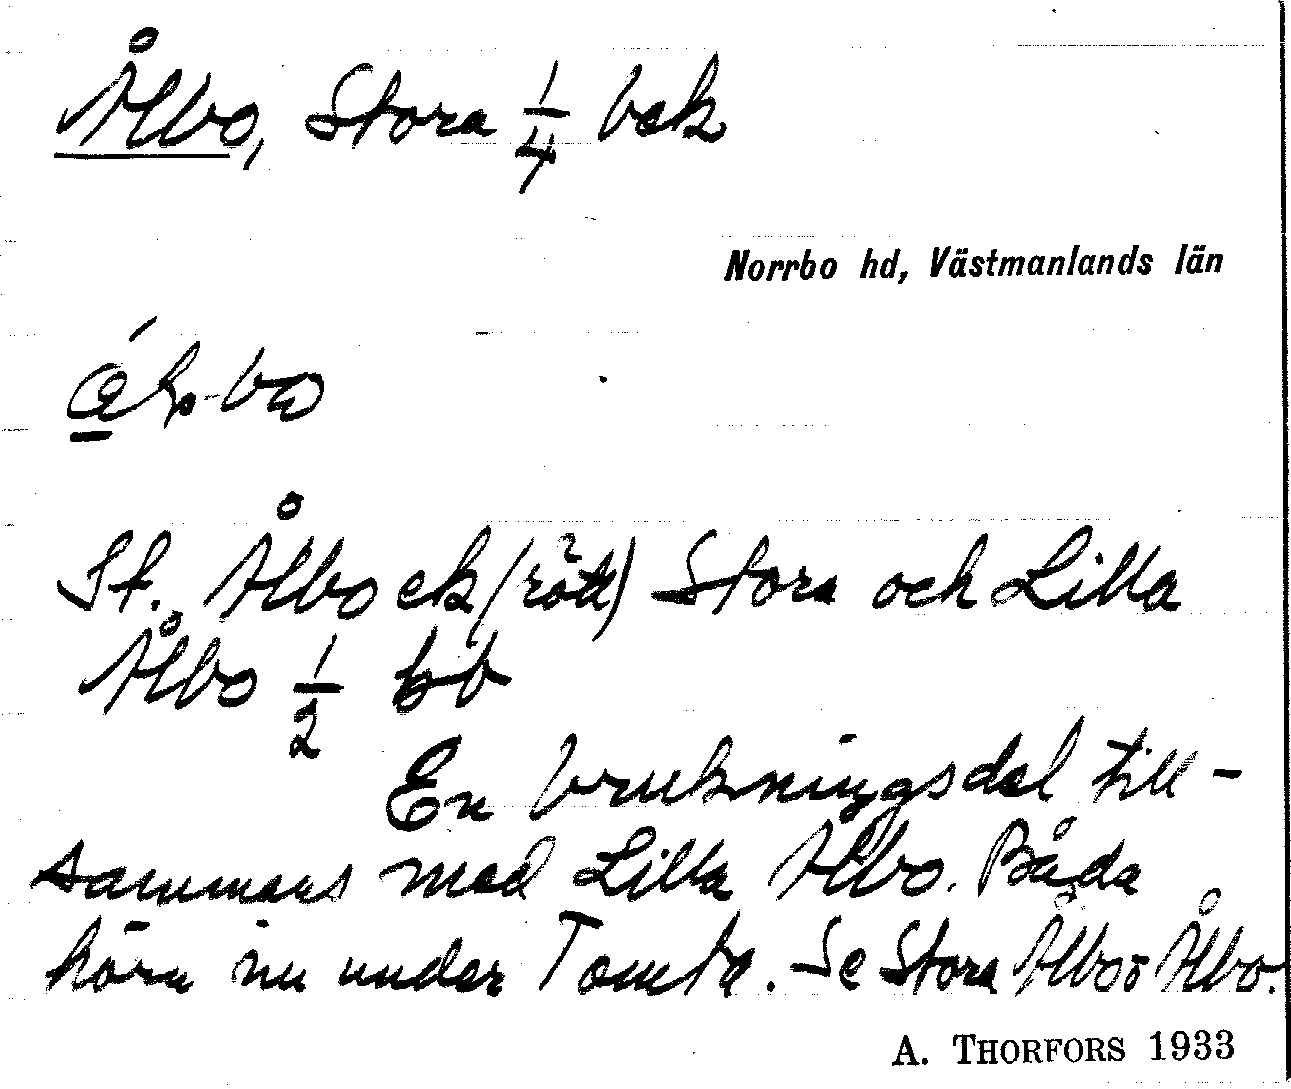 Ålbo, Stora 1/4 bek
Norrbo hd, Västmanlands län
St. Ålbo ek (rött) Stora och Lilla
Ålbo 1/2
En brukningsdel till-
sammans med Lilla Ålbo. Båda
höra nu under Tomta. Se Stora Ålbo o Ålbo.
A. THORFORS 1933